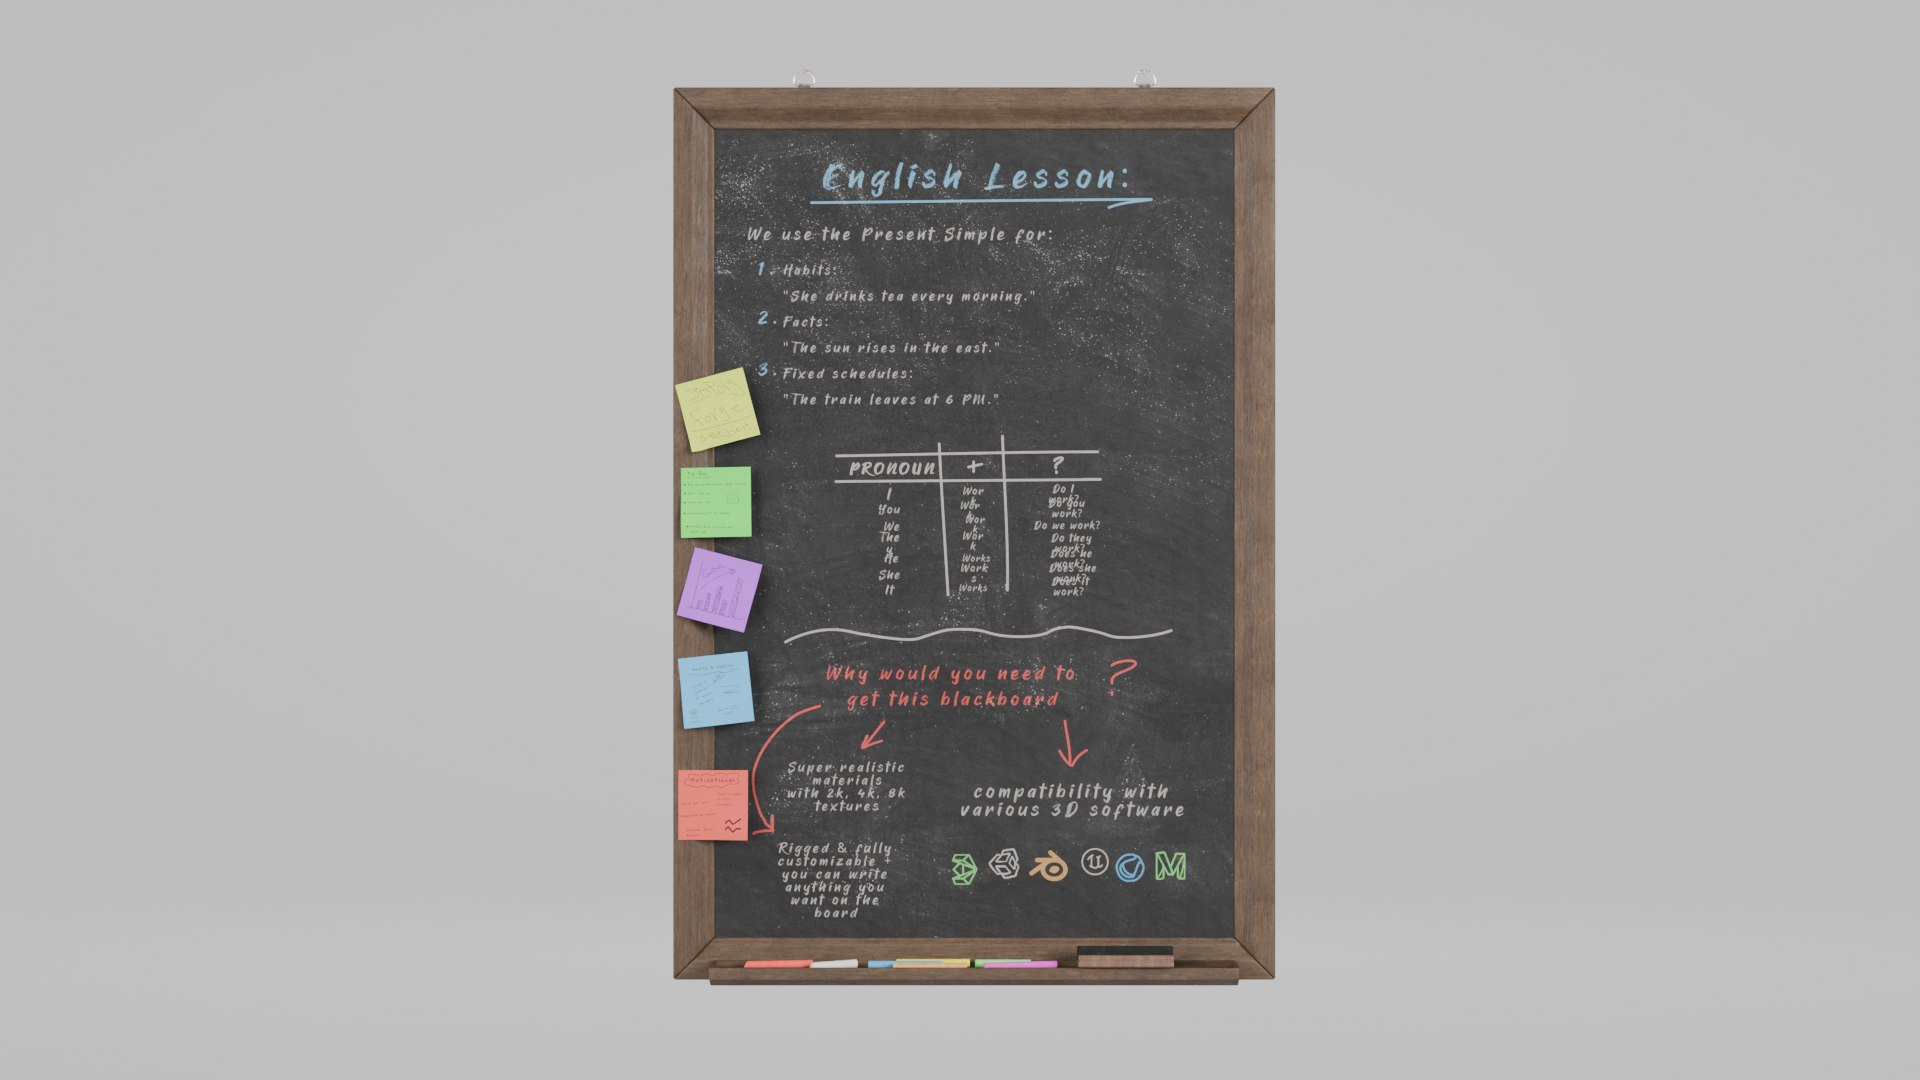 English Lesson:
We use the Present Simple for:
1. Habits:
"She drinks tea every morning."
2. Facts:
"The sun rises in the east."
3. Fixed schedules:
"The train leaves at 6 PM."
PRONOUN + ?
I Work Do I work?
You Work Do you work?
We Work Do we work?
They Work Do they work?
He Works Does he work?
She Works Does she work?
It Works Does it work?
Why would you need to
get this blackboard ?
Super realistic
materials
with 2k, 4k, 8k
textures
compatibility with
various 3D software
Rigged & fully
customizable -
you can write
anything you
want on the
board
3DPoly
Forge
To-Do:
Motivational